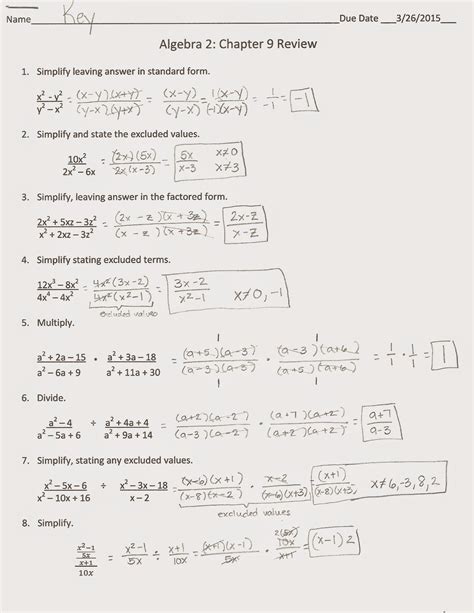 Name Key Due Date 3/26/2015
Algebra 2: Chapter 9 Review
1. Simplify leaving answer in standard form.
x² - y² / y² - x² = (x-y)(x+y) / (y-x)(y+x) = (x-y) / (y-x) = 1(x-y) / (-1)(x-y) = 1 / -1 = -1
2. Simplify and state the excluded values.
10x² / 2x² - 6x = (2x)(5x) / 2x(x-3) = 5x / x-3 x≠0 x≠3
3. Simplify, leaving answer in the factored form.
2x² + 5xz - 3z² / x² + 2xz - 3z² = (2x - z)(x + 3z) / (x - z)(x + 3z) = 2x-z / x-z
4. Simplify stating excluded terms.
12x³ - 8x² / 4x⁴ - 4x² = 4x²(3x-2) / 4x²(x²-1) = 3x-2 / x²-1 x≠0,-1
excluded values
5. Multiply.
a² + 2a - 15 / a² - 6a + 9 · a² + 3a - 18 / a² + 11a + 30 = (a+5)(a-3) / (a-3)(a-3) · (a-3)(a+6) / (a+5)(a+6) = 1/1 · 1/1 = 1
6. Divide.
a² - 4 / a² - 5a + 6 ÷ a² + 4a + 4 / a² + 9a + 14 = (a+2)(a-2) / (a-3)(a-2) · (a+7)(a+2) / (a+2)(a+2) = a+7 / a-3
7. Simplify, stating any excluded values.
x² - 5x - 6 / x² - 10x + 16 ÷ x² - 3x - 18 / x - 2 = (x-6)(x+1) / (x-8)(x-2) · x-2 / (x-6)(x+3) = (x+1) / (x-8)(x+3) x≠6,-3,8,2
excluded values
8. Simplify.
x²-1 / 5x / x+1 / 10x = x²-1 / 5x ÷ x+1 / 10x = (x+1)(x-1) / 5x · 2(5x) 10x / x+1 = (x-1)2